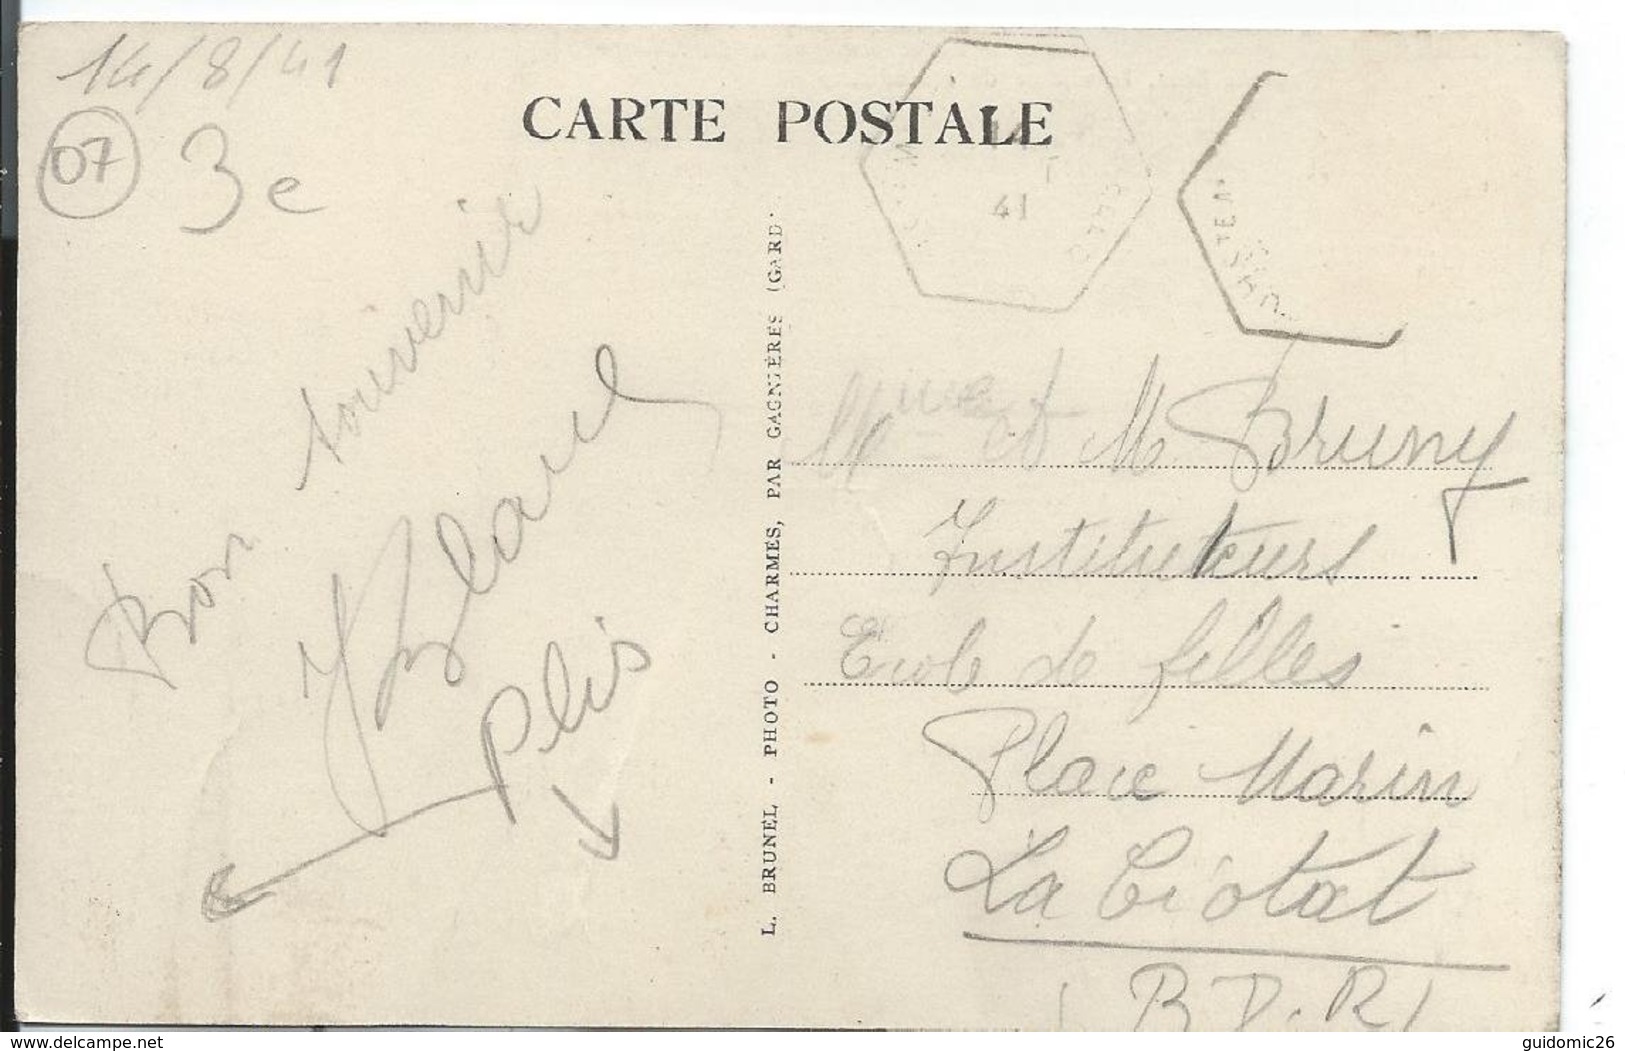 14/8/41
CARTE POSTALE
07
3e
41
Bon souvenir
Blanc
Plis
L. BRUNEL - PHOTO - CHARMES, PAR GAGNIÈRES (GARD)
Mme et M Bruny
Instituteurs
Ecole de filles
Place Marin
La Ciotat
(B.D.R)
delcampe.net
guidomic26